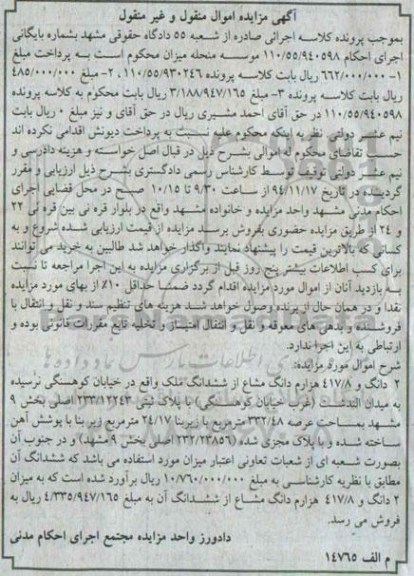 آگهی مزایده اموال منقول و غیر منقول
بموجب پرونده کلاسه اجرائی صادره از شعبه ۵۵ دادگاه حقوقی مشهد بشماره بایگانی
اجرای احکام ۱۱۰/۵۵/۹۴۰۵۹۸ موسسه منحله میزان محکوم است به پرداخت مبلغ
۱- ۶۶۲/۰۰۰/۰۰۰ ریال بابت کلاسه پرونده ۱۱۰/۵۵/۹۳۰۲۴۶ ، ۲- مبلغ ۴۸۵/۰۰۰/۰۰۰
ریال بابت کلاسه پرونده ۳- مبلغ ۳/۱۸۸/۹۴۷/۱۶۵ ریال بابت محکوم به کلاسه پرونده
۱۱۰/۵۵/۹۴۰۵۹۸ در حق آقای احمد مشیری ریال در حق آقای و نیز مبلغ ۰ ریال بابت
نیم عشر دولتی نظر به اینکه محکوم علیه نسبت به پرداخت دیونش اقدامی نکرده اند
حسب تقاضای محکوم له اموالی بشرح ذیل در قبال اصل خواسته و هزینه دادرسی و
نیم عشر دولتی توقیف توسط کارشناس رسمی دادگستری بشرح ذیل ارزیابی و مقرر
گردیده در تاریخ ۹۴/۱۱/۱۷ از ساعت ۹/۳۰ تا ۱۰/۱۵ صبح در محل قضایی اجرای
احکام مدنی مشهد واحد مزایده و خانواده مشهد واقع در بلوار قره نی بین قره نی ۲۲
و ۲۴ از طریق مزایده حضوری بفروش برسد مزایده از قیمت ارزیابی شده شروع و به
کسانی که بالاترین قیمت را پیشنهاد نمایند واگذار خواهد شد طالبین به خرید می توانند
برای کسب اطلاعات بیشتر پنج روز قبل از برگزاری مزایده به این اجرا مراجعه تا نسبت
به بازدید آنان از اموال مورد مزایده اقدام گردد ضمنا حداقل ۱۰٪ از بهای مورد مزایده
نقدا و در همان حال از برنده وصول خواهد شد هزینه های تنظیم سند و نقل و انتقال با
فروشنده و بدهی های معوقه و نقل و انتقال امتیاز و تخلیه تابع مقررات قانونی بوده و
ارتباطی به این اجرا ندارد.
شرح اموال مورد مزایده:
۲ دانگ و ۴۱۷/۸ هزارم دانگ مشاع از ششدانگ ملک واقع در خیابان کوهسنگی نرسیده
به میدان الندشت (غرب خیابان کوهسنگی) با پلاک ثبتی ۲۳۳/۱۲۲۴۳ اصلی بخش ۹
مشهد بمساحت عرصه ۳۳۲/۴۸ مترمربع با زیربنا ۲۴/۱۷ مترمربع زیر بنا با پوشش آهن
ساخته شده و با پلاک مجزی شده (۲۳۲/۲۳۸۵۶ اصلی بخش ۹ مشهد) و در جنوب آن
بصورت شعبه ای از شعبات تعاونی اعتبار میزان مورد استفاده می باشد که ششدانگ آن
مطابق با نظریه کارشناسی به مبلغ ۱۰/۷۶۰/۰۰۰/۰۰۰ ریال برآورد شده است که به میزان
۲ دانگ و ۴۱۷/۸ هزارم دانگ مشاع از ششدانگ آن به مبلغ ۴/۳۳۵/۹۴۷/۱۶۵ ریال به
فروش می رسد.
دادورز واحد مزایده مجتمع اجرای احکام مدنی
م الف ۱۴۷۶۵